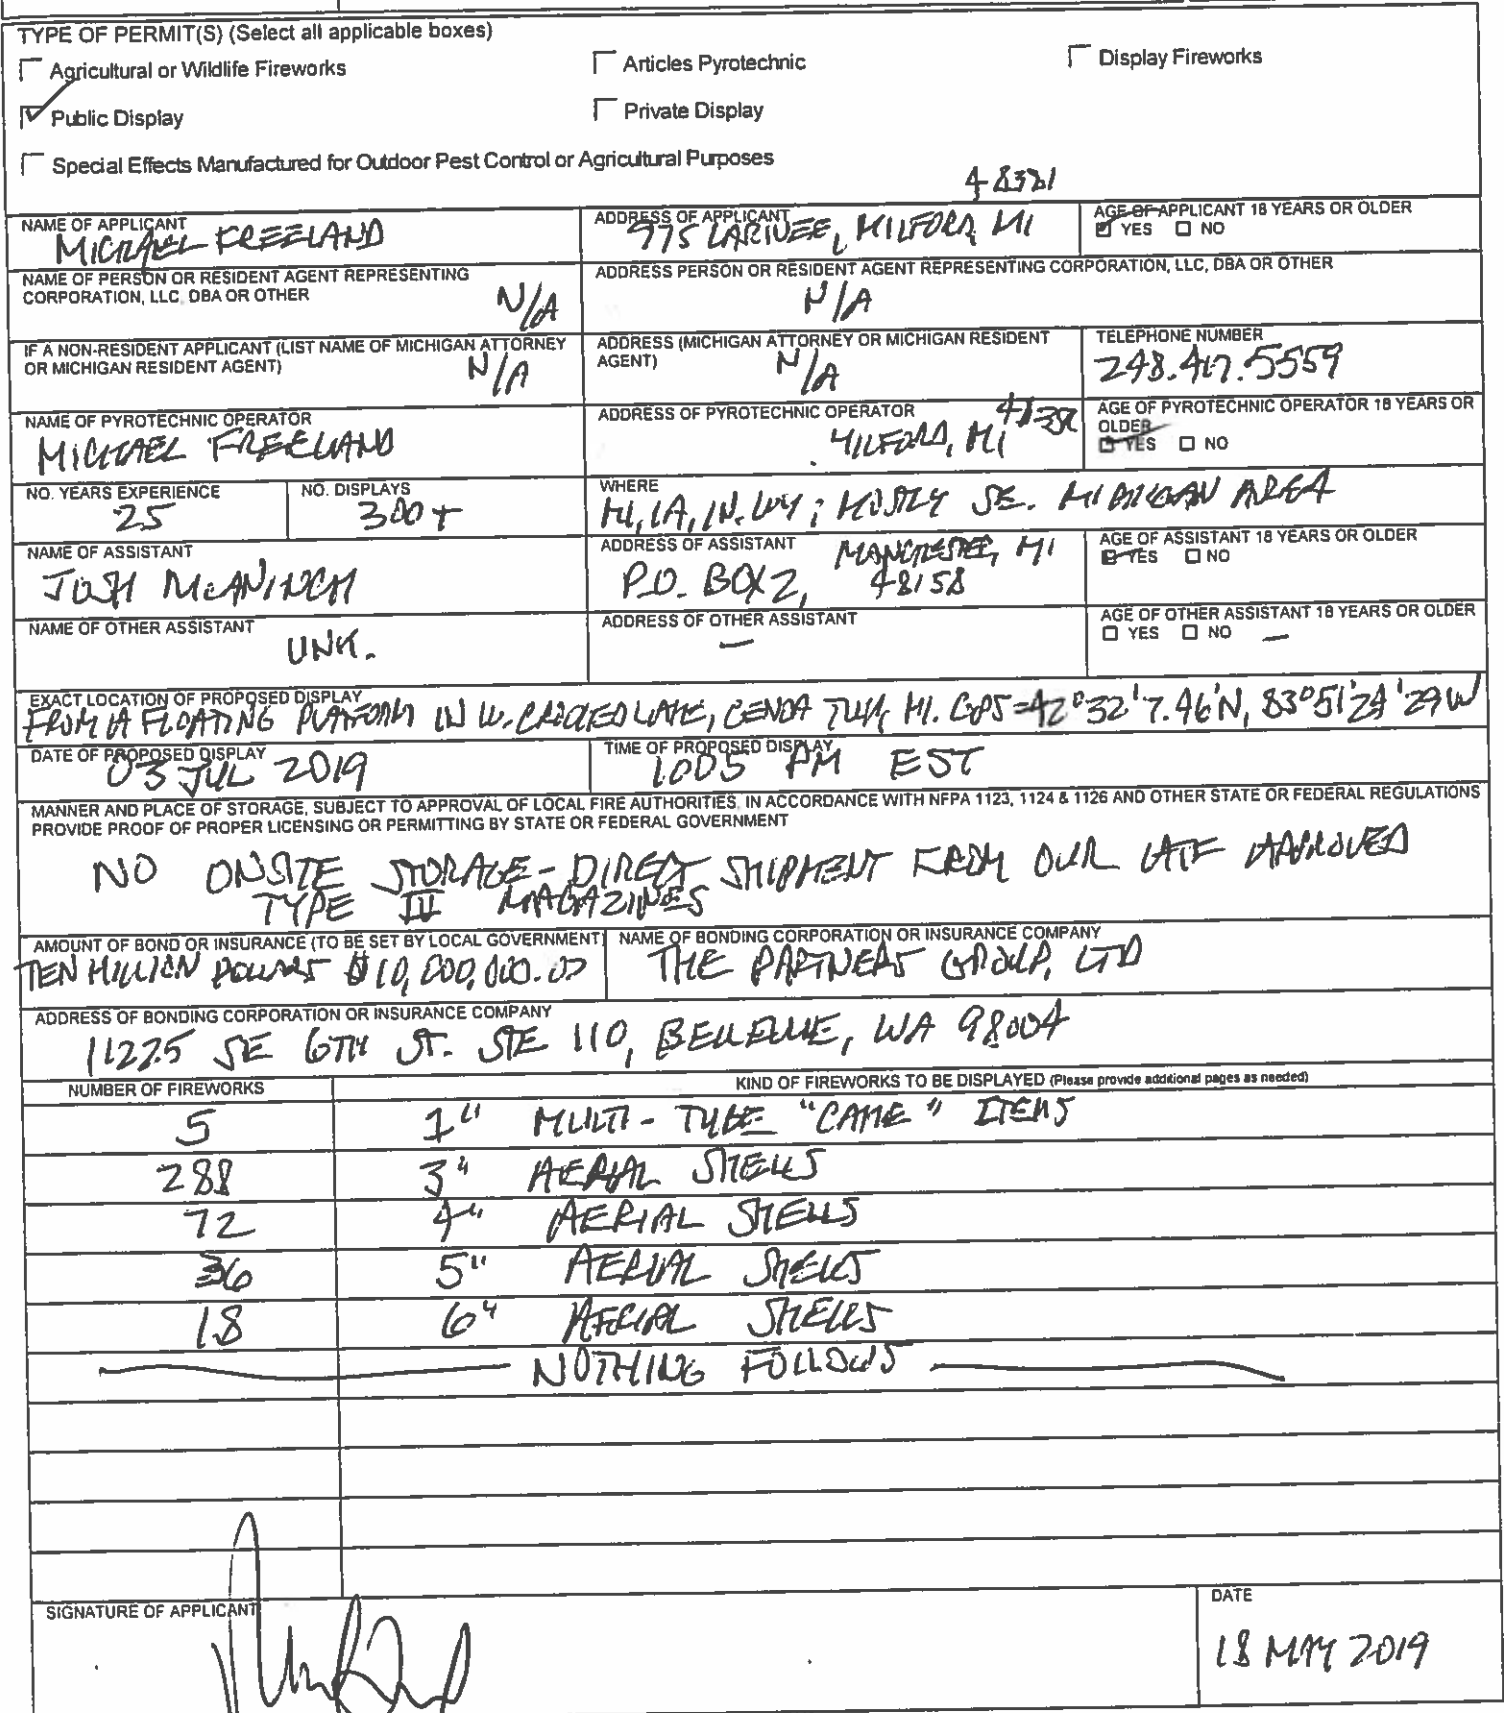 TYPE OF PERMIT(S) (Select all applicable boxes)
Agricultural or Wildlife Fireworks Articles Pyrotechnic Display Fireworks
Public Display Private Display
Special Effects Manufactured for Outdoor Pest Control or Agricultural Purposes
48381
NAME OF APPLICANT ADDRESS OF APPLICANT AGE OF APPLICANT 18 YEARS OR OLDER
MICHAEL FREELAND 975 LARIVEE, MILFORD, MI YES NO
NAME OF PERSON OR RESIDENT AGENT REPRESENTING ADDRESS PERSON OR RESIDENT AGENT REPRESENTING CORPORATION, LLC, DBA OR OTHER
CORPORATION, LLC, DBA OR OTHER N/A N/A
IF A NON-RESIDENT APPLICANT (LIST NAME OF MICHIGAN ATTORNEY ADDRESS (MICHIGAN ATTORNEY OR MICHIGAN RESIDENT TELEPHONE NUMBER
OR MICHIGAN RESIDENT AGENT) N/A AGENT) N/A 248.417.5559
NAME OF PYROTECHNIC OPERATOR ADDRESS OF PYROTECHNIC OPERATOR AGE OF PYROTECHNIC OPERATOR 18 YEARS OR
OLDER
MICHAEL FREELAND MILFORD, MI YES NO
NO. YEARS EXPERIENCE NO. DISPLAYS WHERE
25 300+ MI, IA, IN, WY; MOSTLY SE. MICHIGAN AREA
NAME OF ASSISTANT ADDRESS OF ASSISTANT MANCHESTER, MI AGE OF ASSISTANT 18 YEARS OR OLDER
JOSH McANINCH P.O. BOX 2, 48158 YES NO
NAME OF OTHER ASSISTANT ADDRESS OF OTHER ASSISTANT AGE OF OTHER ASSISTANT 18 YEARS OR OLDER
UNK. — YES NO —
EXACT LOCATION OF PROPOSED DISPLAY
FROM A FLOATING PLATFORM IN W. CROOKED LAKE, GENOA TWP, MI. GPS=42°32'7.46'N, 83°51'24'29W
DATE OF PROPOSED DISPLAY TIME OF PROPOSED DISPLAY
03 JUL 2019 1005 PM EST
MANNER AND PLACE OF STORAGE, SUBJECT TO APPROVAL OF LOCAL FIRE AUTHORITIES, IN ACCORDANCE WITH NFPA 1123, 1124 & 1126 AND OTHER STATE OR FEDERAL REGULATIONS
PROVIDE PROOF OF PROPER LICENSING OR PERMITTING BY STATE OR FEDERAL GOVERNMENT
NO ONSITE STORAGE - DIRECT SHIPMENT FROM OUR ATF APPROVED
TYPE IV MAGAZINES
AMOUNT OF BOND OR INSURANCE (TO BE SET BY LOCAL GOVERNMENT) NAME OF BONDING CORPORATION OR INSURANCE COMPANY
TEN MILLION DOLLARS $10,000,000.00 THE PARTNERS GROUP, LTD
ADDRESS OF BONDING CORPORATION OR INSURANCE COMPANY
11225 SE 6TH ST. STE 110, BELLEVUE, WA 98004
NUMBER OF FIREWORKS KIND OF FIREWORKS TO BE DISPLAYED (Please provide additional pages as needed)
5 1" MULTI-TUBE "CAKE" ITEMS
288 3" AERIAL SHELLS
72 4" AERIAL SHELLS
36 5" AERIAL SHELLS
18 6" AERIAL SHELLS
NOTHING FOLLOWS
SIGNATURE OF APPLICANT DATE
18 MAY 2019